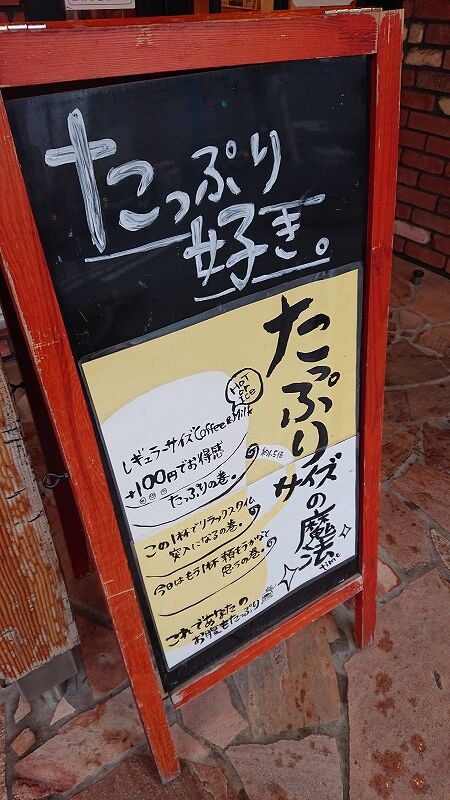 たっぷり
好き。
たっぷりサイズの魔法
time
HOT
or
ICE
レギュラーサイズCoffee&Milk
+100円でお得感
たっぷりの巻。
約1.5倍
この1杯でリラックスタイム
突入になるの巻。
今日はもう1杯頼もうかなと
思うの巻。
これであなたの
お腹もたっぷり